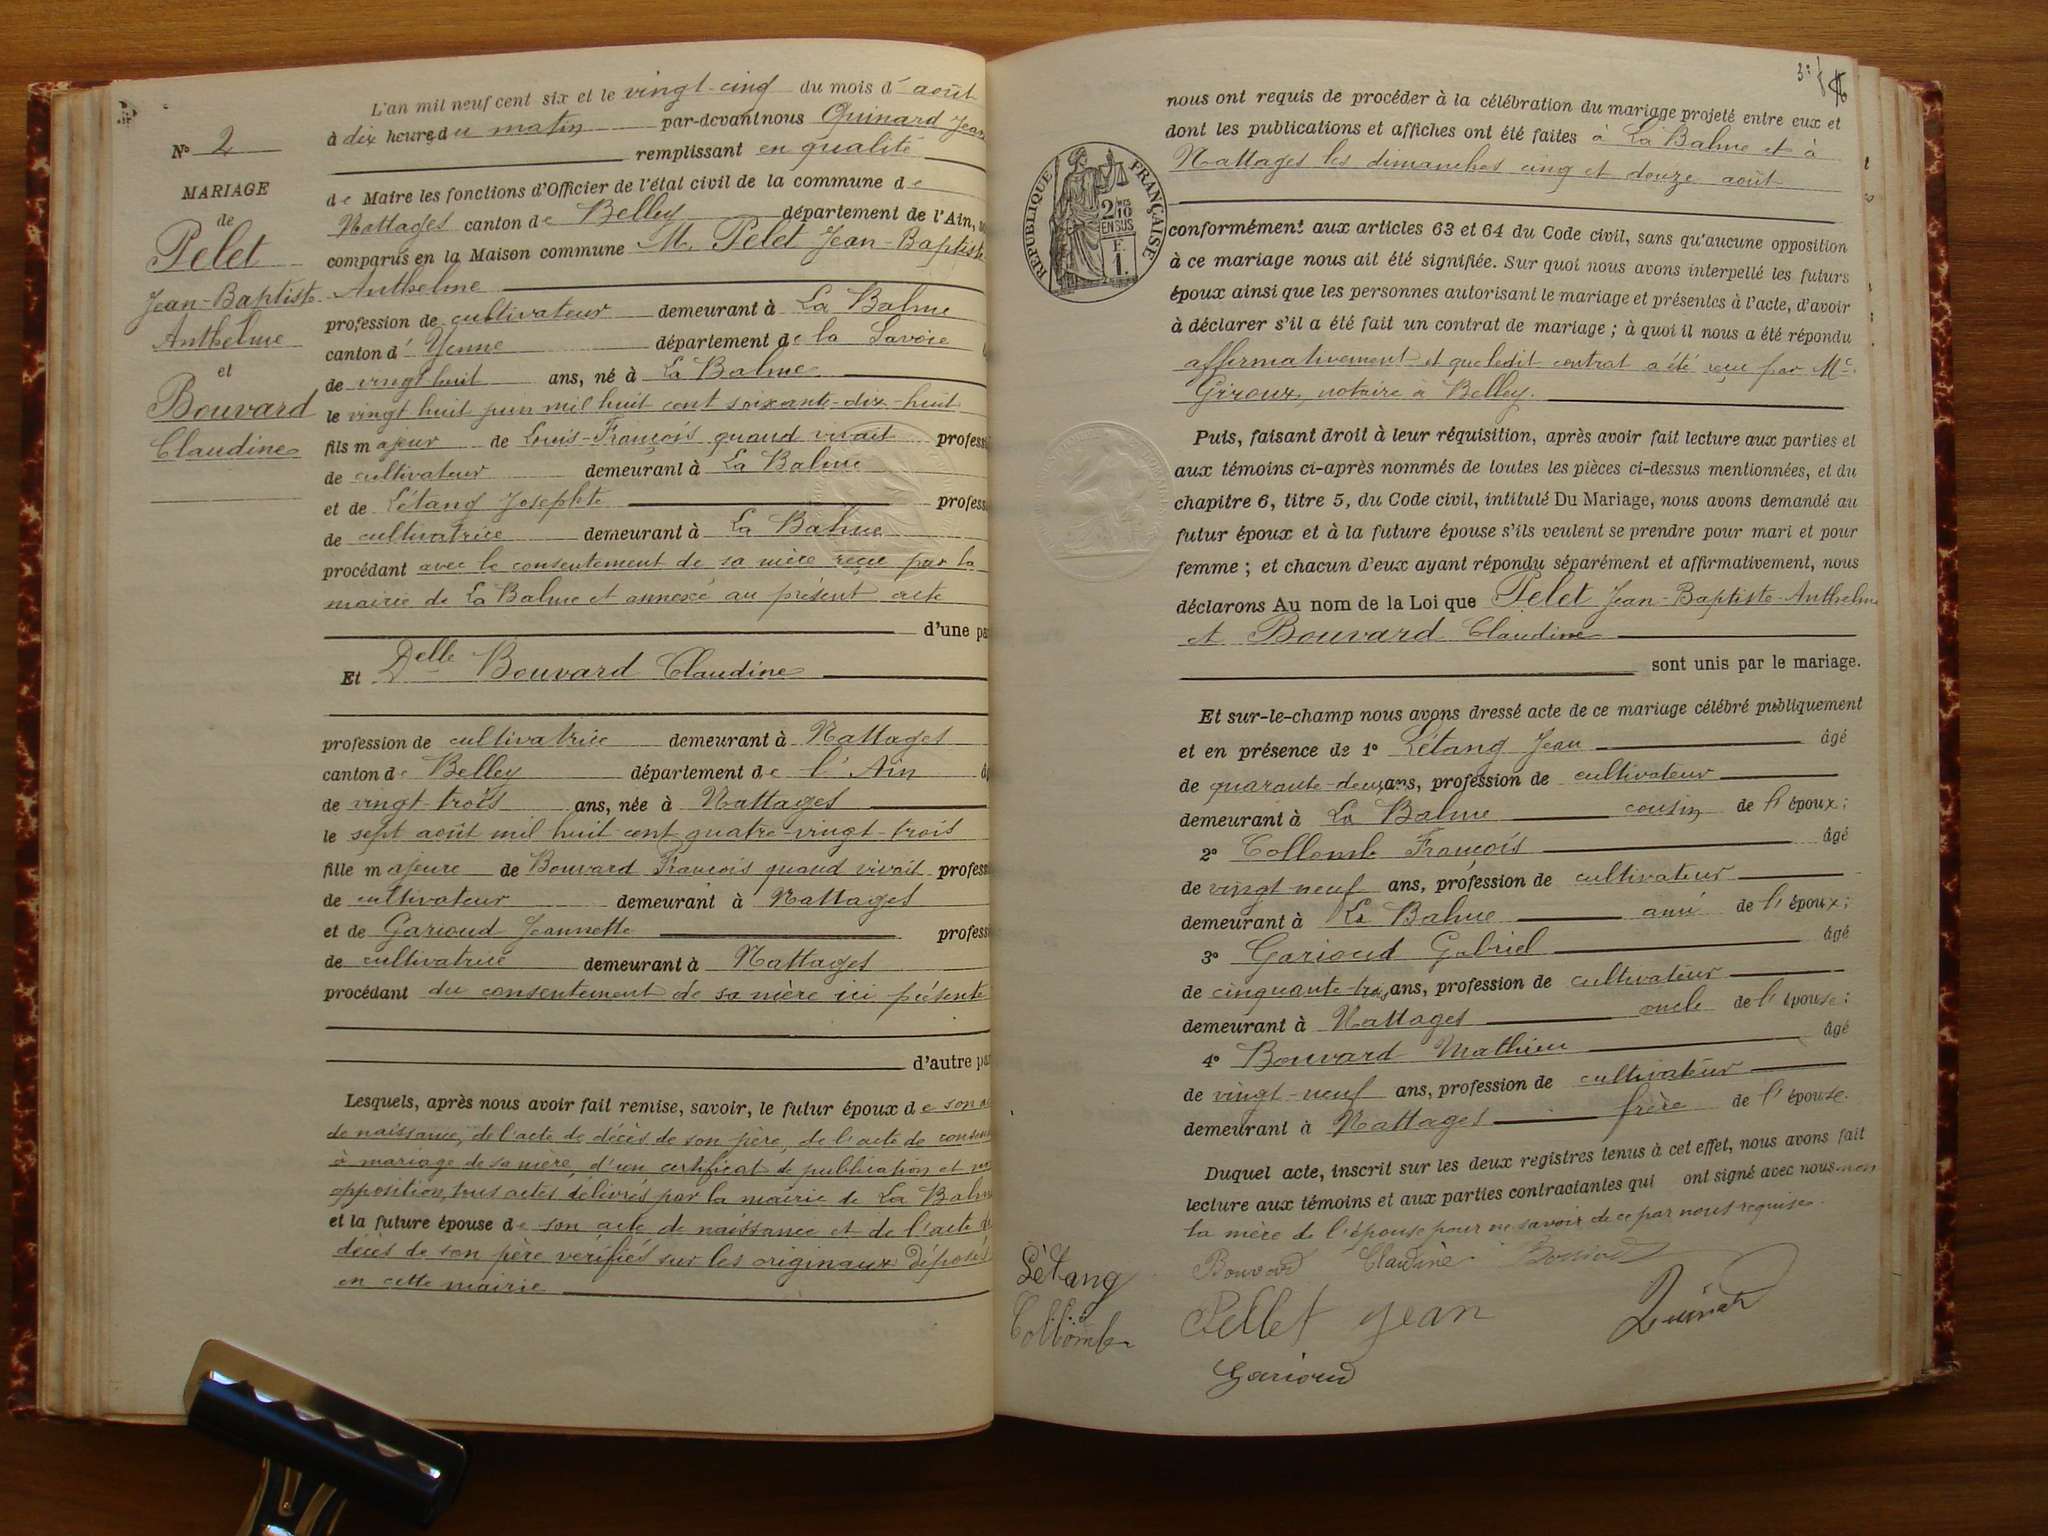 L'an mil neuf cent six et le vingt-cinq du mois d'août
à dix heures du matin par-devant nous Quinard Jean
remplissant en qualité
de Maire les fonctions d'Officier de l'état civil de la commune de
Nattages canton de Belley département de l'Ain,
comparus en la Maison commune M. Pelet Jean-Baptiste
Anthelme
profession de cultivateur demeurant à La Balme
canton d'Yenne département de la Savoie
de vingt huit ans, né à La Balme
le vingt huit juin mil huit cent soixante-dix-huit
fils majeur de Louis-François quand vivait profess
de cultivateur demeurant à La Balme
et de Létang Josephte profess
de cultivatrice demeurant à La Balme
procédant avec le consentement de sa mère reçu par la
mairie de La Balme et annexé au présent acte
d'une pa
Et Delle Bouvard Claudine
profession de cultivatrice demeurant à Nattages
canton de Belley département de l'Ain
de vingt-trois ans, née à Nattages
le sept août mil huit cent quatre-vingt-trois
fille majeure de Bouvard François quand vivait profess
de cultivateur demeurant à Nattages
et de Garioud Jeannette profess
de cultivatrice demeurant à Nattages
procédant du consentement de sa mère ici présente
d'autre pa
Lesquels, après nous avoir fait remise, savoir, le futur époux de son
de naissance, de l'acte de décès de son père, de l'acte de consen
à mariage de sa mère, d'un certificat de publication et
opposition, tous actes délivrés par la mairie de La Balme
et la future épouse de son acte de naissance et de l'acte de
décès de son père vérifiés sur les originaux déposés
en cette mairie
No 2
MARIAGE
de
Pelet
Jean-Baptiste
Anthelme
et
Bouvard
Claudine
3
nous ont requis de procéder à la célébration du mariage projeté entre eux et
dont les publications et affiches ont été faites à La Balme et à
Nattages les dimanches cinq et douze août
RÉPUBLIQUE FRANÇAISE
2/10 EN SUS
F.
1.
conformément aux articles 63 et 64 du Code civil, sans qu'aucune opposition
à ce mariage nous ait été signifiée. Sur quoi nous avons interpellé les futurs
époux ainsi que les personnes autorisant le mariage et présentes à l'acte, d'avoir
à déclarer s'il a été fait un contrat de mariage ; à quoi il nous a été répondu
affirmativement et que ledit contrat a été reçu par Me
Giroux, notaire à Belley.
Puis, faisant droit à leur réquisition, après avoir fait lecture aux parties et
aux témoins ci-après nommés de toutes les pièces ci-dessus mentionnées, et du
chapitre 6, titre 5, du Code civil, intitulé Du Mariage, nous avons demandé au
futur époux et à la future épouse s'ils veulent se prendre pour mari et pour
femme ; et chacun d'eux ayant répondu séparément et affirmativement, nous
déclarons Au nom de la Loi que Pelet Jean-Baptiste-Anthelme
et Bouvard Claudine
sont unis par le mariage.
Et sur-le-champ nous avons dressé acte de ce mariage célébré publiquement
et en présence de 1° Létang Jean âgé
de quarante-deux ans, profession de cultivateur
demeurant à La Balme cousin de l'époux ;
2° Collomb François âgé
de vingt-neuf ans, profession de cultivateur
demeurant à La Balme ami de l'époux ;
3° Garioud Gabriel âgé
de cinquante-trois ans, profession de cultivateur
demeurant à Nattages oncle de l'épouse ;
4° Bouvard Mathieu âgé
de vingt-neuf ans, profession de cultivateur
demeurant à Nattages frère de l'épouse.
Duquel acte, inscrit sur les deux registres tenus à cet effet, nous avons fait
lecture aux témoins et aux parties contractantes qui ont signé avec nous non
la mère de l'épouse pour ne savoir de ce par nous requise.
Bouvard Claudine Bouvard
Létang
Collomb
Pellet Jean
Quinard
Garioud